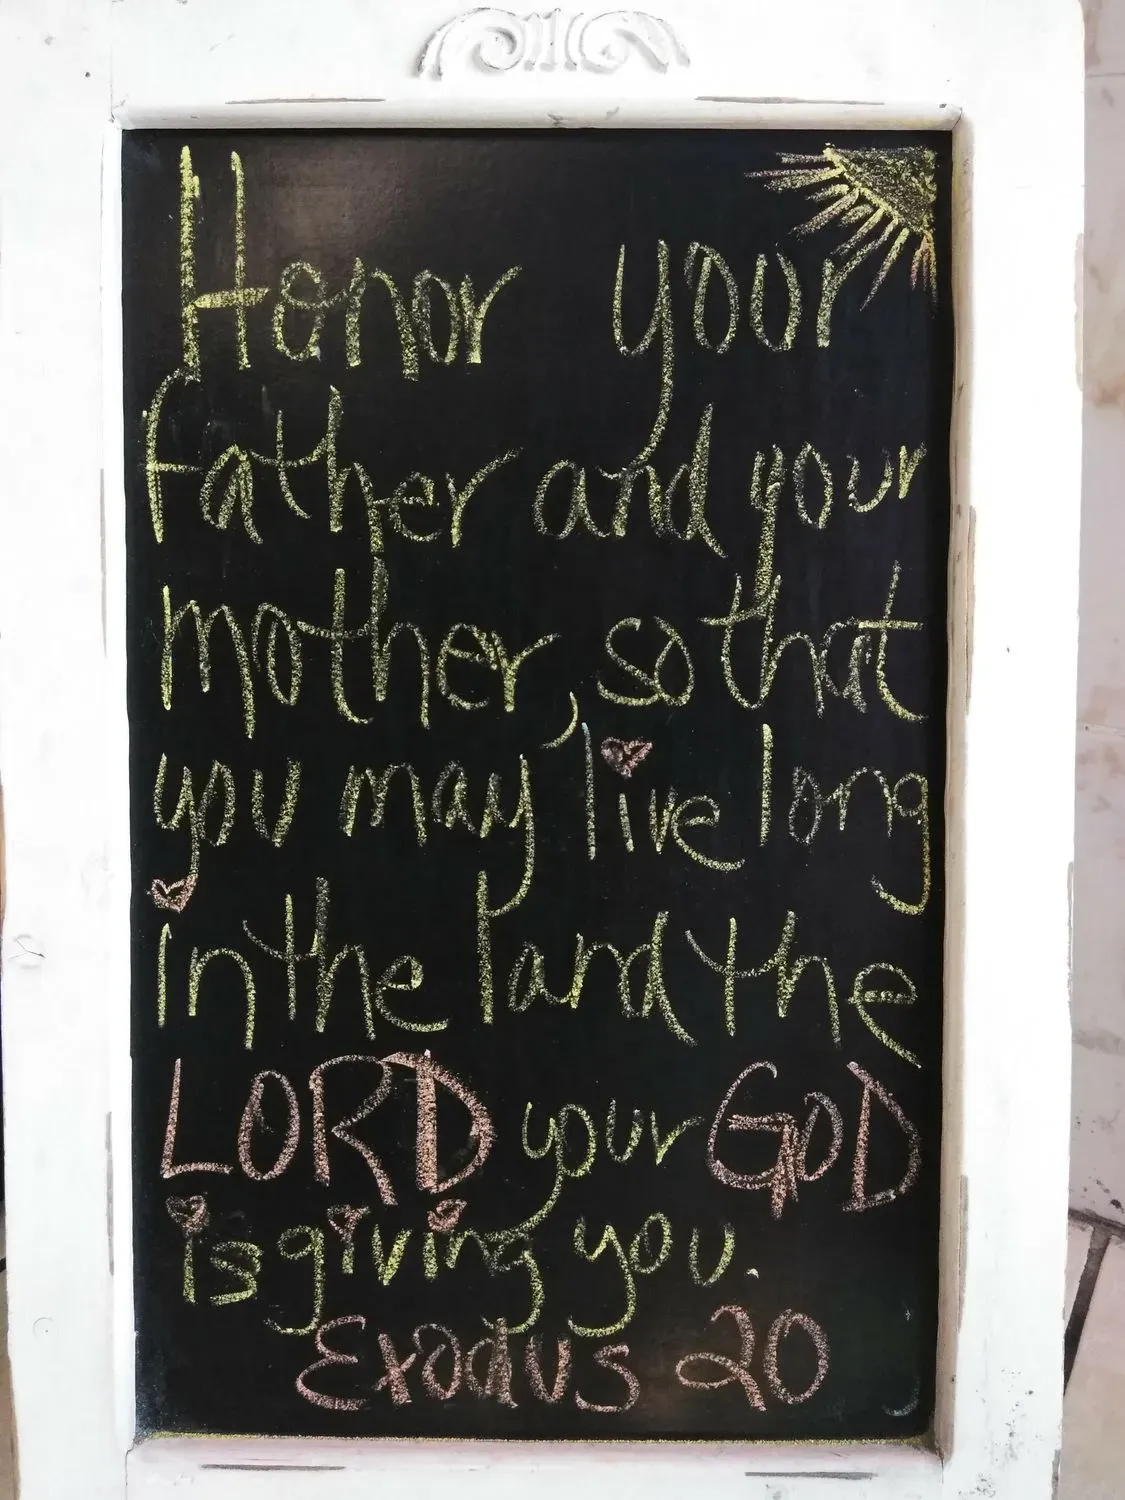 Honor your
father and your
mother, so that
you may live long
in the land the
LORD your GOD
is giving you.
Exodus 20